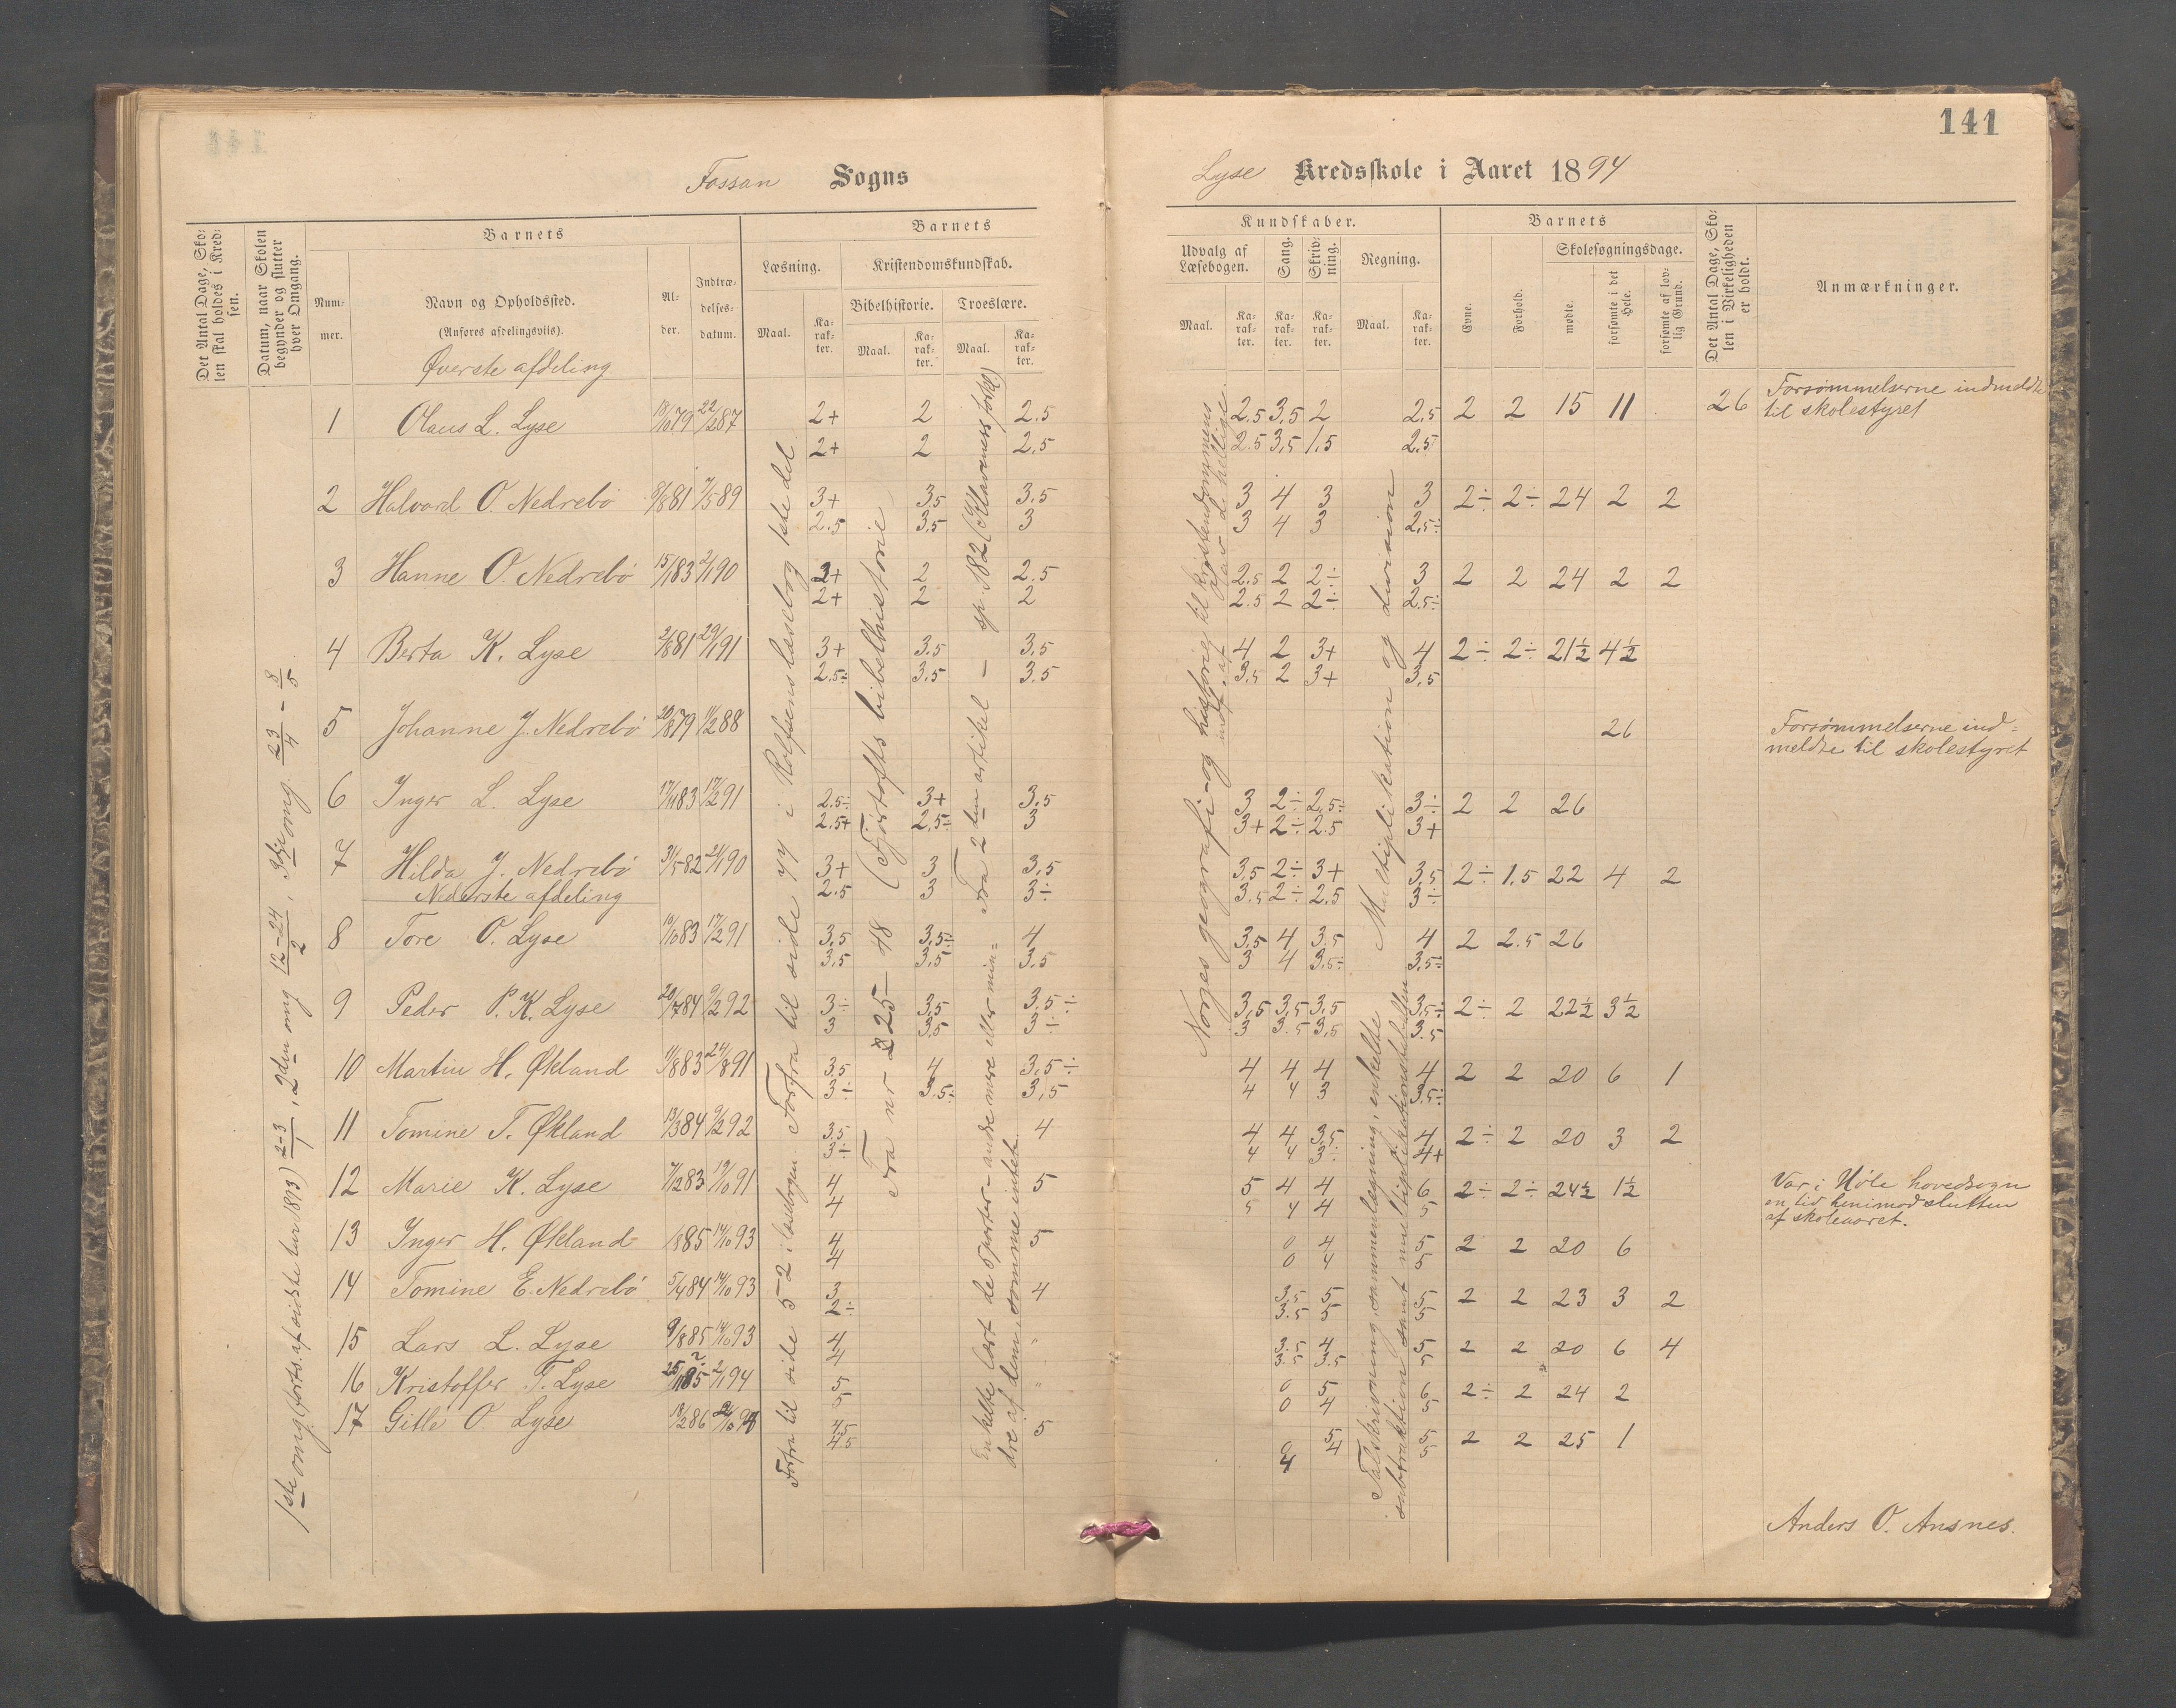 141
Fossan Sogns
Lyse Kredsskole i Aaret 1894
Det Antal Dage, Sko-
len skal holdes i Kred-
sen.
Datum, naar Skolen
begynder og slutter
hver Omgang.
Barnets
Num-
mer.
Navn og Opholdssted.
(Anføres afdelingsviis).
Al-
der.
Indtræ-
delses-
datum.
Barnets
Læsning.
Maal.
Ka-
rak-
ter.
Kristendomskundskab.
Bibelhistorie.
Maal.
Ka-
rak-
ter.
Troeslære.
Maal.
Ka-
rak-
ter.
Kundskaber.
Udvalg af
Læsebogen.
Maal.
Ka-
rak-
ter.
Sang.
Ka-
rak-
ter.
Skriv-
ning.
Ka-
rak-
ter.
Regning.
Maal.
Ka-
rak-
ter.
Barnets
Evne.
Forhold.
Skolesøgningsdage.
mødte.
forsømte i det
Hele.
forsømte af lov-
lig Grund.
Det Antal Dage, Sko-
len i Virkeligheden
er holdt.
Anmærkninger.
1ste omg. (forts. af sidste tur 1893) 2-3/1, 2den omg 12-24/2, 3dje omg. 23/4 - 8/5
Øverste afdeling
1 Olaus L. Lyse 18/10 79 22/2 87 2+ 2 2.5 2.5 3,5 2 2.5 2 2 15 11 26 Forsømmelserne indmeldte
til skolestyret
2+ 2 2.5 2.5 3,5 1,5 2,5
2 Halvard O. Nedrebö 8/8 81 7/5 89 3+ 3,5 3.5 3 4 3 3 2÷ 2÷ 24 2 2
2.5 3,5 3 3 4 3 2,5÷
3 Hanne O. Nedrebö 15/1 83 2/1 90 2+ 2 2.5 2.5 2 2÷ 3 2 2 24 2 2
2+ 2 2 2.5 2 2÷ 2,5÷
4 Berta K. Lyse 2/8 81 29/1 91 3+ 3.5 3.5 4 2 3+ 4 2÷ 2÷ 21½ 4½
2.5÷ 3,5 3.5 3,5 2 3+ 3,5
5 Johanne J. Nedrebö 20/8 79 11/2 88 26 Forsømmelserne ind-
meldte til skolestyret
6 Inger L. Lyse 17/11 83 17/2 91 2.5÷ 3+ 3,5 3 2÷ 2,5÷ 3÷ 2 2 26
2.5+ 2,5÷ 3 3+ 2÷ 2.5 3+
7 Hilda J. Nedrebö 31/5 82 21/1 90 3+ 3 3,5 3,5 2÷ 3+ 3,5 2÷ 1.5 22 4 2
2.5 3 3÷ 3,5 2÷ 2.5 3÷
Nederste afdeling
8 Tore O. Lyse 10/10 83 17/2 91 3,5 3,5÷ 4 3,5 4 3.5 4 2 2.5 26
3,5 3,5 3.5 3 4 3,5÷ 3,5÷
9 Peder P. K. Lyse 20/7 84 9/2 92 3÷ 3,5 3.5÷ 3,5 3,5 3,5 3,5÷ 2÷ 2 22½ 3½
3 3,5 3÷ 3 3.5 3,5 3.5
10 Martin H. Økland 11/8 83 24/8 91 3,5 4 3,5÷ 4 4 4 4 2 2 20 6 1
3÷ 3.5÷ 3,5 4 4 3 3.5÷
11 Tomine T. Økland 13/3 84 9/2 92 3,5 4 4 4 3,5 4 2÷ 2 20 3 2
3÷ 4 4 3÷ 4+
12 Marie K. Lyse 7/12 83 19/10 91 4 5 5 4 4 6 2÷ 2÷ 24½ 1½ Var i Høle hovedsogn
en tid henimod slutten
af skoleaaret.
4 5 4 4 5
13 Inger H. Økland 1/8 85 14/10 93 4 5 0 4 5 2 2 20 6
4 0 4 5
14 Tomine E. Nedrebö 5/4 84 14/10 93 3 4 3,5 5 5 2 2 23 3 2
2÷ 3.5 5 5
15 Lars L. Lyse 9/8 85 14/10 93 4 " 3.5 4 5 2 2 20 6 4
4 3.5 3.5 5
16 Kristoffer T. Lyse 25/11 85 2/1 94 5 " 0 5 6 2÷ 2 24 2
5 0 4 5
17 Gitle O. Lyse 18/2 86 4.5 5 5 5 2 2 25 1
4.5 4 4 5
Forfra til side 94 i Rolfsens læsebog 1ste del
Forfra til side 52 i læsebogen
Fra nr 225 - 48 (Fjörtofts bibelhistorie
Fra 2den artikel - sp. 182 (Klaveness forkl.)
Enkelte lært de sporter - andre mere eller min-
dre af dem, somme intet.
Norges geografi - og historie til kristendommens
indf. af Olav d. hellige.
Multiplikation og division
Talskrivning, sammenlægning, enkelte
subtraktion samt multiplikationstabellen
Anders O. Ansnes.